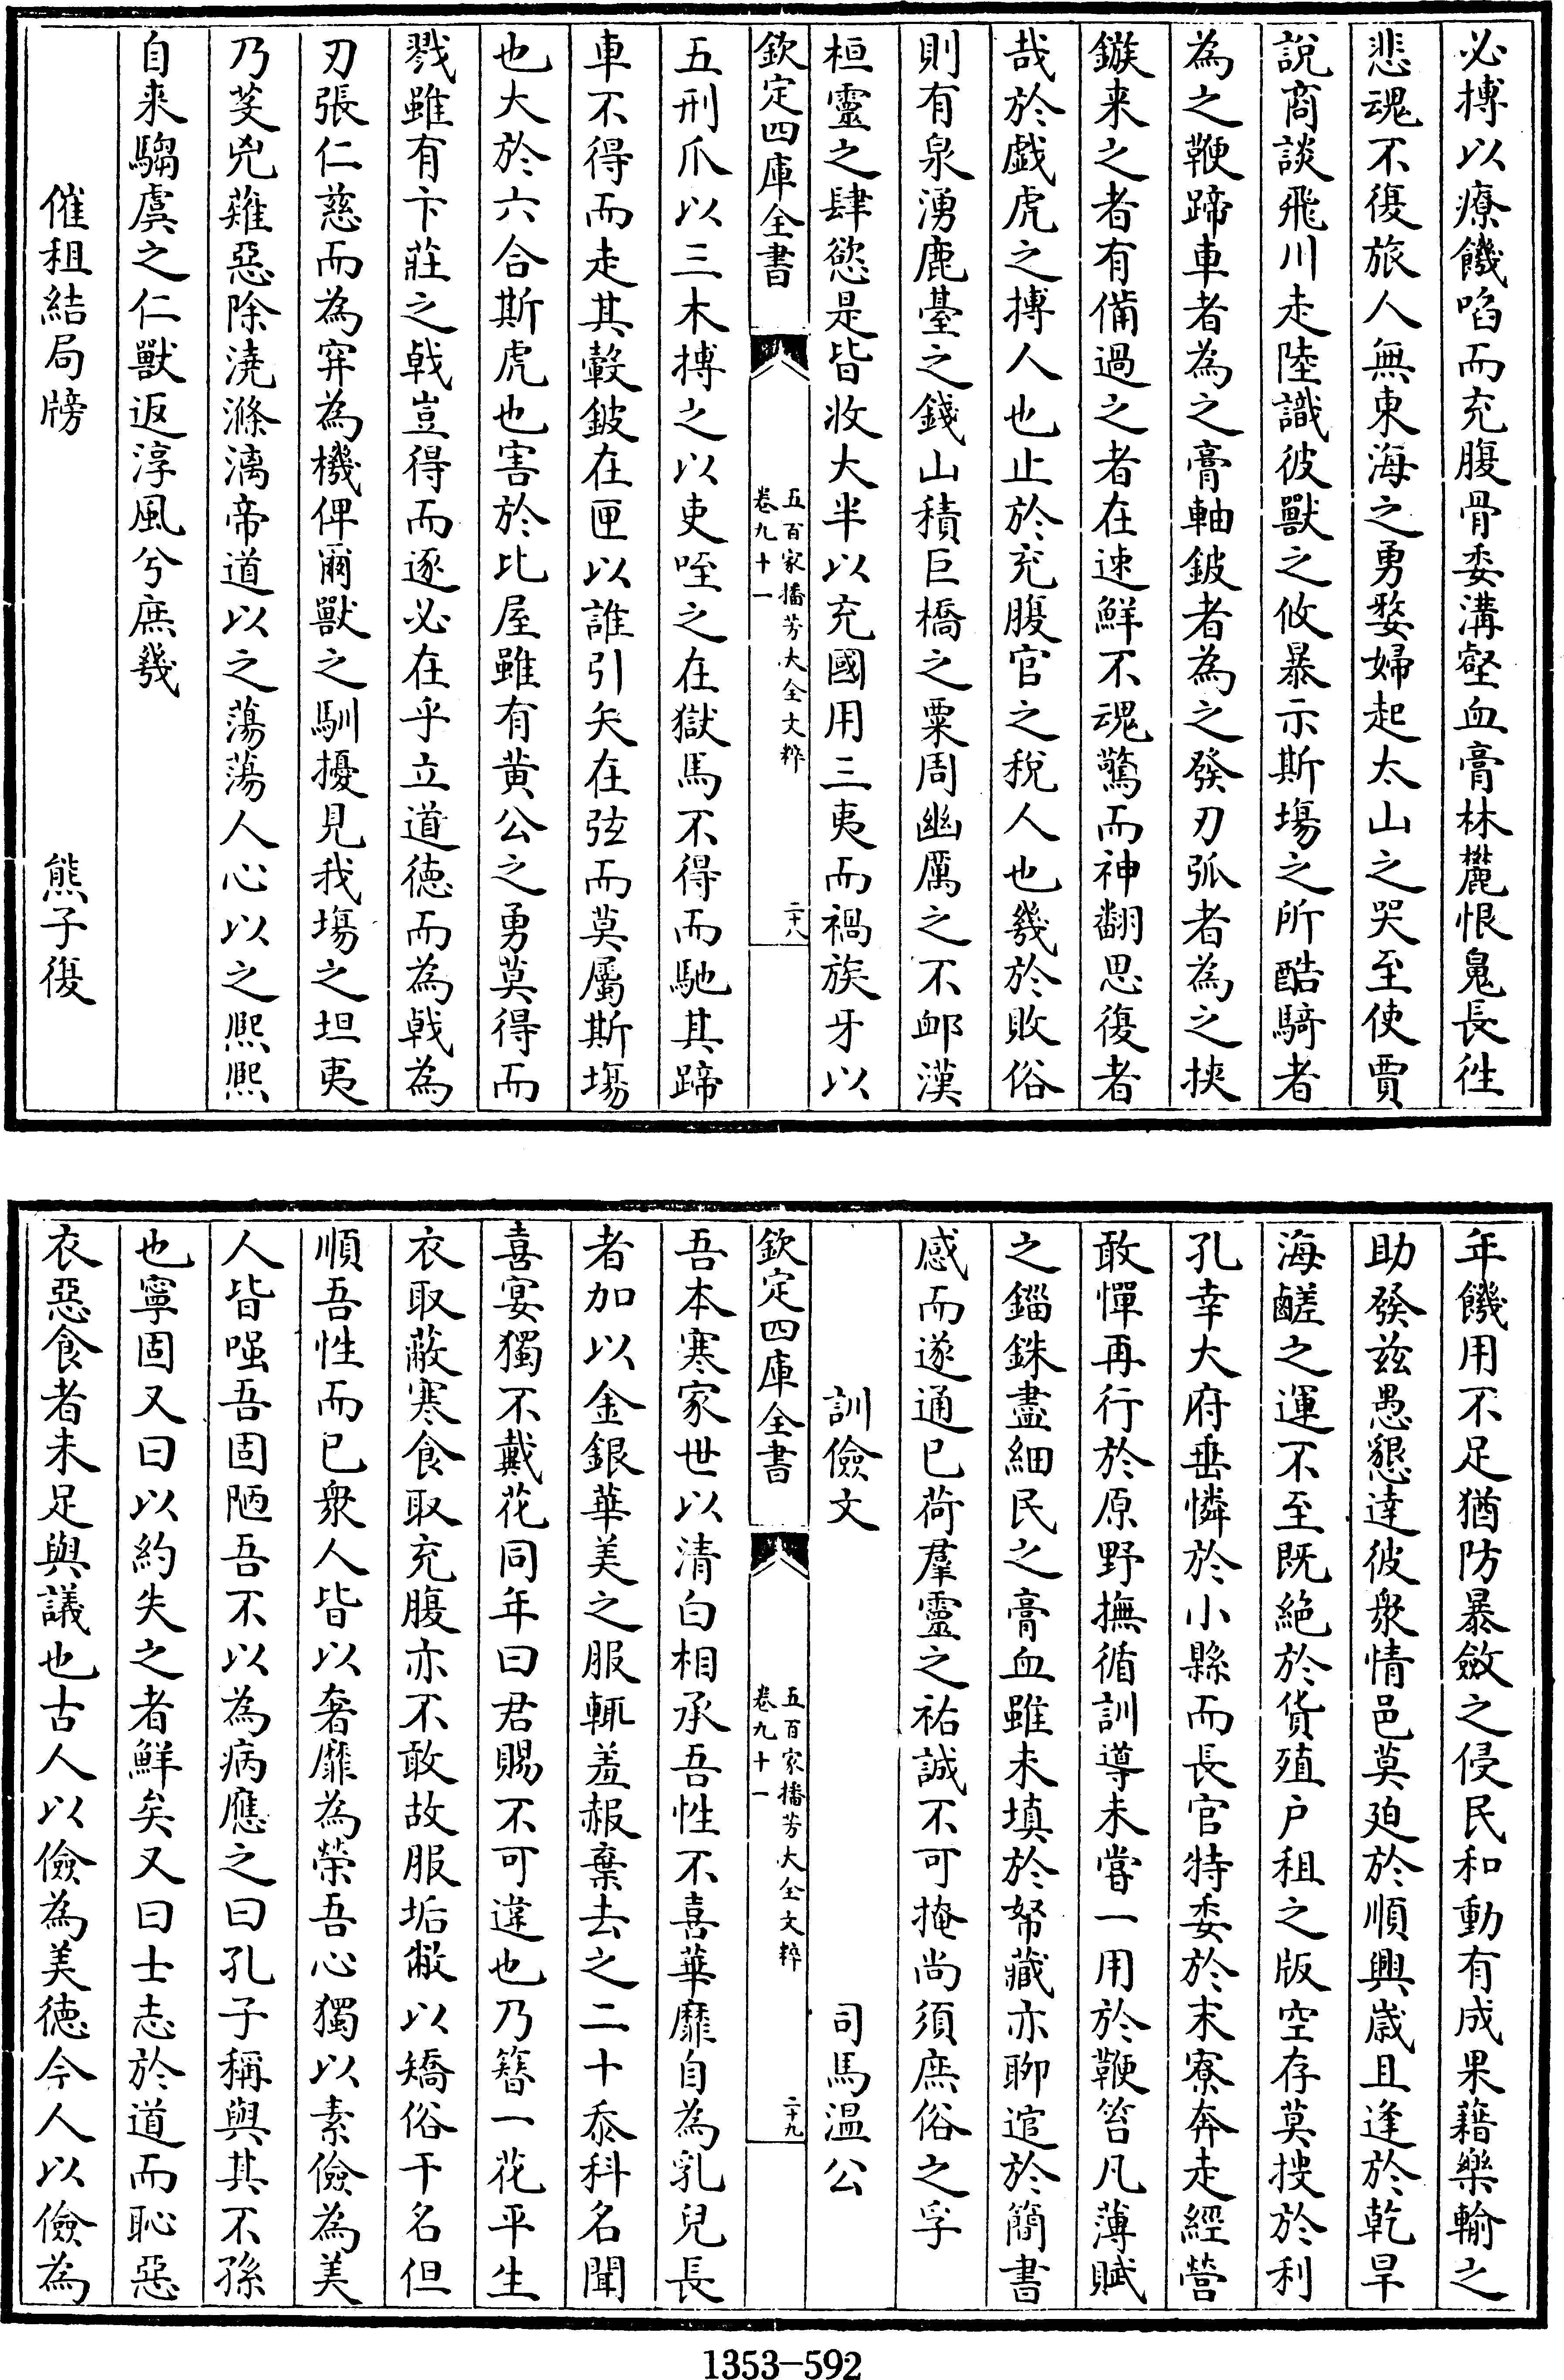 必搏以療饑啗而充腹骨委溝壑血膏林麓恨鬼長往
悲魂不復旅人無東海之勇婺婦起太山之哭至使賈
說商談飛川走陸識彼獸之攸暴示斯場之所酷騎者
為之鞭蹄車者為之膏軸鈹者為之發刃弧者為之挾
鏃来之者有備過之者在速鮮不魂驚而神翻思復者
哉於戲虎之搏人也止於充腹官之稅人也幾於敗俗
則有泉湧鹿臺之錢山積巨橋之粟周幽厲之不䘏漢
桓靈之肆慾是皆收大半以充國用三夷而禍族牙以
欽定四庫全書
五百家播芳大全文粹
卷九十一
二十八
五刑爪以三木搏之以吏咥之在獄馬不得而馳其蹄
車不得而走其轂鈹在匣以誰引矢在弦而莫屬斯塲
也大於六合斯虎也害於比屋雖有黄公之勇莫得而
戮雖有卞莊之戟豈得而逐必在乎立道徳而為戟為
刃張仁慈而為穽為機俾爾獸之馴擾見我塲之坦夷
乃芟兇薙惡除澆滌漓帝道以之蕩蕩人心以之熈熈
自来騶虞之仁獸返淳風兮庶幾
催租結局牓
熊子復
年饑用不足猶防暴斂之侵民和動有成果藉樂輸之
助發兹愚懇達彼衆情邑莫廹於順興嵗且逢於乾旱
海鹺之運不至既絶於貨殖户租之版空存莫捜於利
孔幸大府垂憐於小縣而長官特委於末寮奔走經營
敢憚再行於原野撫循訓導未嘗一用於鞭笞凡薄賦
之錙銖盡細民之膏血雖未填於帑藏亦聊逭於簡書
感而遂通已荷羣靈之祐誠不可掩尚須庶俗之孚
訓儉文
司馬温公
欽定四庫全書
五百家播芳大全文粹
卷九十一
二十九
吾本寒家世以清白相承吾性不喜華靡自為乳兒長
者加以金銀華美之服輒羞赧棄去之二十忝科名聞
喜宴獨不戴花同年曰君賜不可違也乃簪一花平生
衣取蔽寒食取充腹亦不敢故服垢敝以矯俗干名但
順吾性而已衆人皆以奢靡為榮吾心獨以素儉為美
人皆嗤吾固陋吾不以為病應之曰孔子稱與其不孫
也寧固又曰以約失之者鮮矣又曰士志於道而恥惡
衣惡食者未足與議也古人以儉為美徳今人以儉為
1353-592